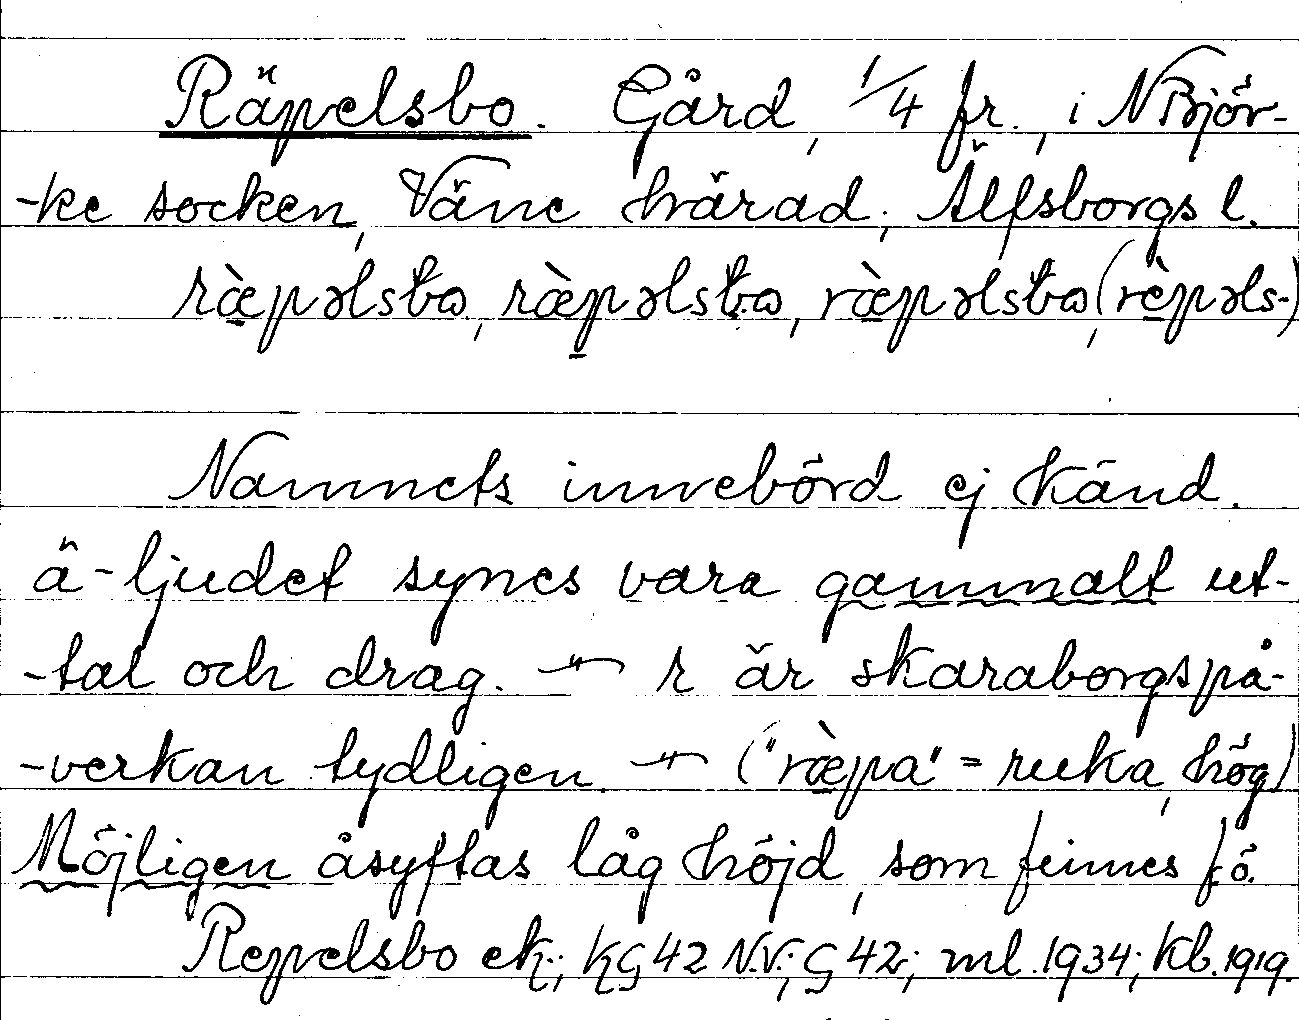 Räpelsbo. Gård, 1/4 fr., i N Björ-
-ke socken, Väne härad, Älfsborgs l.
ræ̀pəlsbω, ræ̀pəlsbω, ræ̀pəlsbω, (rèpəls-)
Namnets innebörd ej känd.
ä-ljudet synes vara gammalt ut-
-tal och drag. — r är skaraborgspå-
-verkan tydligen — ("ræ̀pa" = ruka, hög)
Möjligen åsyftas låg höjd, som finnes f. ö.
Repelsbo ek.; KG 42 N.V.; G 42; ml. 1934; Kb. 1919.